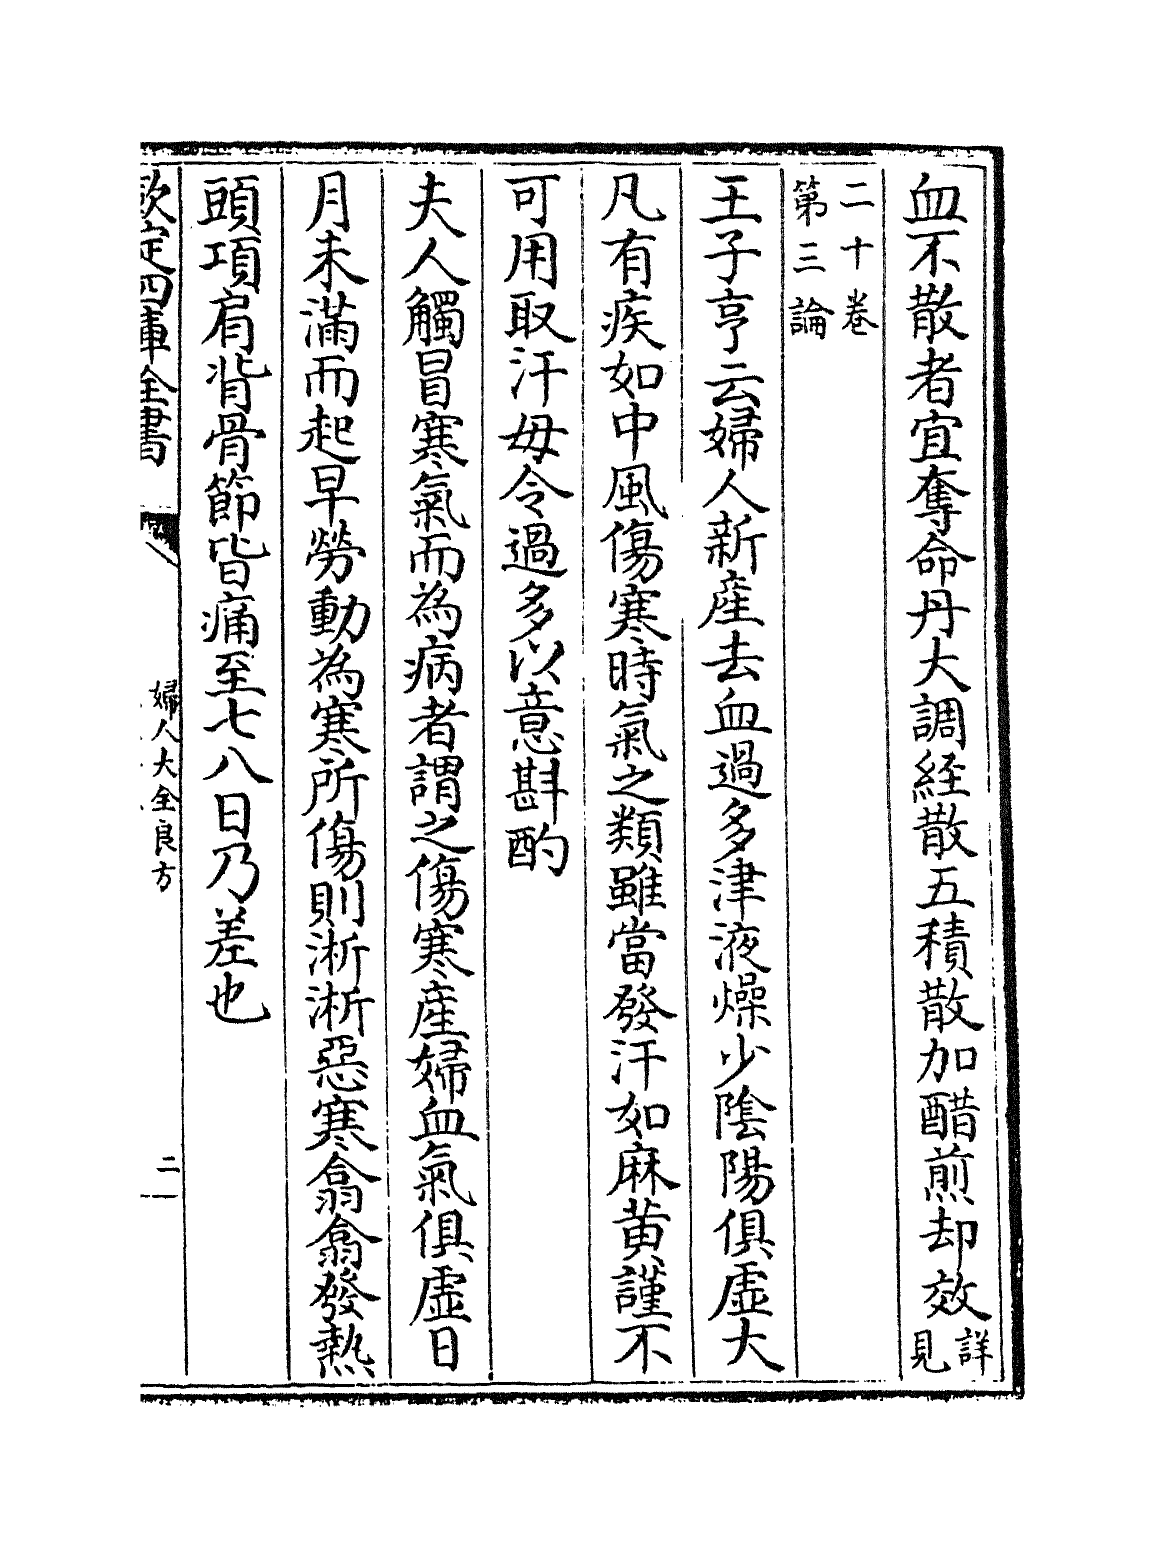 血不散者宜奪命丹大調経散五積散加醋煎却效詳見
二十卷
第三論
王子亨云婦人新産去血過多津液燥少隂陽俱虛大
凡有疾如中風傷寒時氣之類雖當發汗如麻黄謹不
可用取汗毋令過多以意斟酌
夫人觸冒寒氣而為病者謂之傷寒産婦血氣俱虛日
月未滿而起早勞動為寒所傷則淅淅惡寒翕翕發熱
頭項肩背骨節皆痛至七八日乃差也
欽定四庫全書
婦人大全良方
二